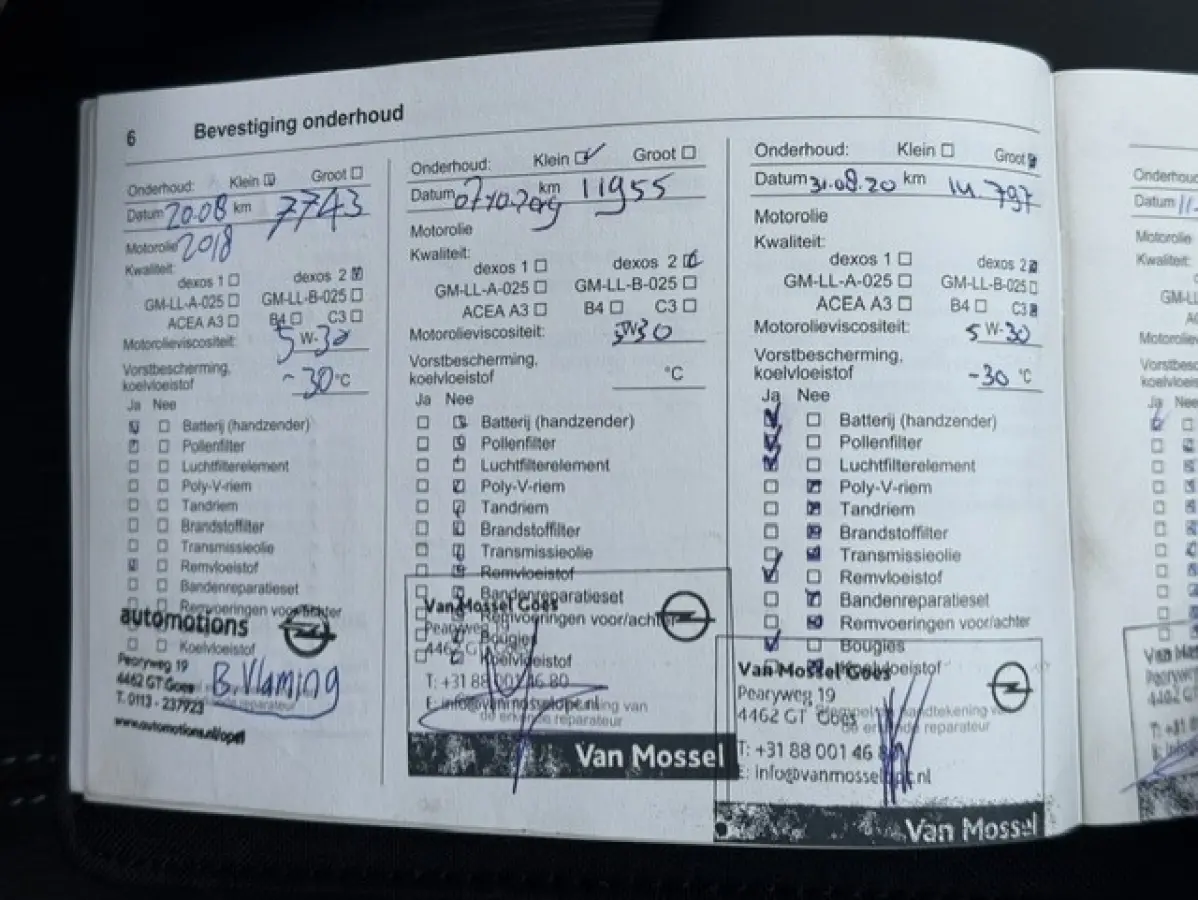 6 Bevestiging onderhoud
Onderhoud: Klein Groot
Datum 20-08 km 7743
Motorolie 2018
Kwaliteit:
dexos 1 dexos 2
GM-LL-A-025 GM-LL-B-025
ACEA A3 B4 C3
Motorolieviscositeit: 5 W-30
Vorstbescherming,
koelvloeistof -30 °C
Ja Nee
Batterij (handzender)
Pollenfilter
Luchtfilterelement
Poly-V-riem
Tandriem
Brandstoffilter
Transmissieolie
Remvloeistof
Bandenreparatieset
Remvoeringen voor/achter
automotions
Koelvloeistof
Pearyweg 19
4462 GT Goes
B. Vlaming
T. 0113 - 237923
reparateur
www.automotions.nl/opel
Onderhoud: Klein Groot
Datum 07-10-2019 km 11955
Motorolie
Kwaliteit:
dexos 1 dexos 2
GM-LL-A-025 GM-LL-B-025
ACEA A3 B4 C3
Motorolieviscositeit: 5W30
Vorstbescherming,
koelvloeistof °C
Ja Nee
Batterij (handzender)
Pollenfilter
Luchtfilterelement
Poly-V-riem
Tandriem
Brandstoffilter
Transmissieolie
Remvloeistof
Bandenreparatieset
Van Mossel Goes
Remvoeringen voor/achter
Pearyweg
Bougies
4462 GT
Koelvloeistof
T: +31 88 001 46 80
reparateur
Van Mossel
Onderhoud: Klein Groot
Datum 31-08-20 km 14.797
Motorolie
Kwaliteit:
dexos 1 dexos 2
GM-LL-A-025 GM-LL-B-025
ACEA A3 B4 C3
Motorolieviscositeit: 5 W-30
Vorstbescherming,
koelvloeistof -30 °C
Ja Nee
Batterij (handzender)
Pollenfilter
Luchtfilterelement
Poly-V-riem
Tandriem
Brandstoffilter
Transmissieolie
Remvloeistof
Bandenreparatieset
Remvoeringen voor/achter
Bougies
Van Mossel Goes
Koelvloeistof
Pearyweg 19
4462 GT Goes
reparateur
T: +31 88 001 46
Van Mossel
Onderhoud
Datum 11-
Motorolie
Kwaliteit:
GM-LL
Ja Nee